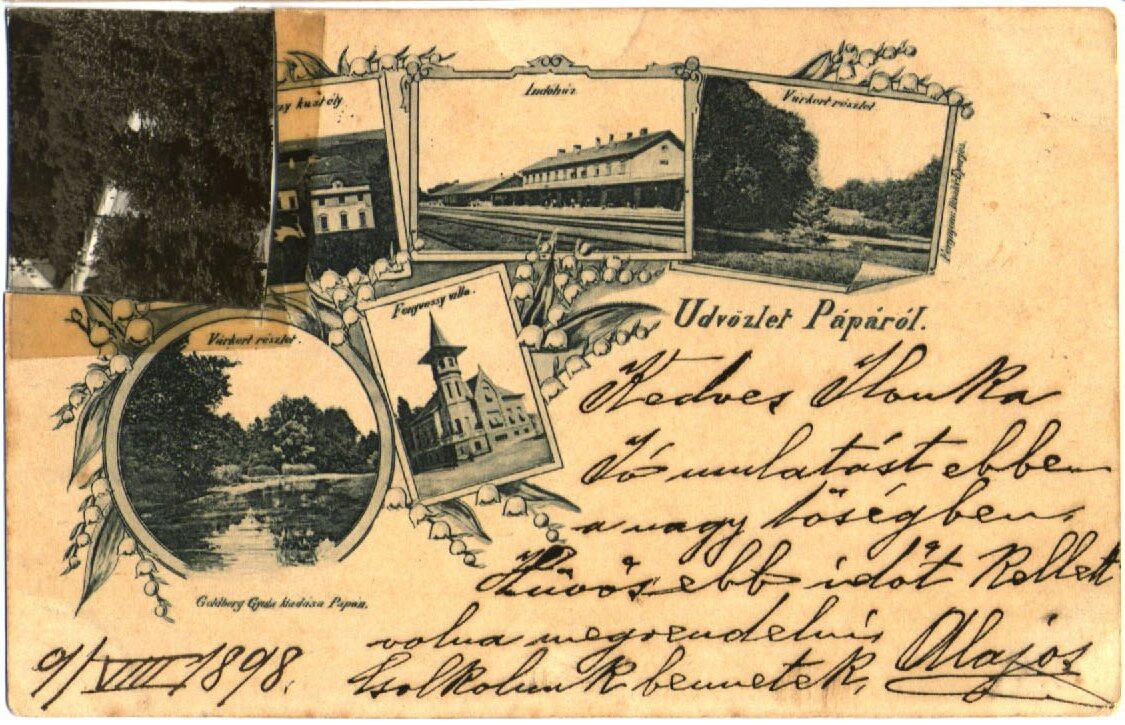 zy kastély
Indóház
Várkert részlet
Fenyvessy villa.
Várkert részlet.
Üdvözlet Pápáról.
Kedves Ilonka
Jó mulatást ebben
a nagy hőségben.
Hűvösebb időt kellett
volna megrendelni
Csolkolunk bennetek,
Alajos
Goldberg Gyula kiadása Pápán.
9/VIII 1898.